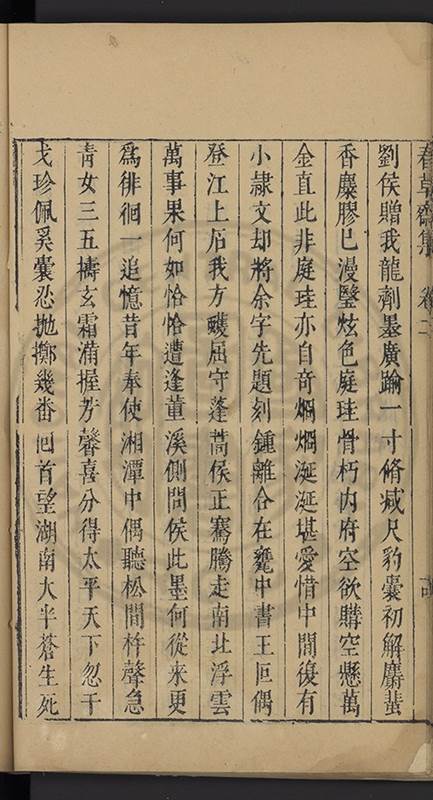 春草齋集 卷二
劉侯贈我龍劑墨廣踰一寸脩减尺豹囊初解麝蜚
香麋膠已漫瑿炫色庭珪骨朽内府空欲購空懸萬
金直此非庭珪亦自奇烱烱涎涎堪愛惜中間復有
小隷文却將余字先題刻鍾離合在甕中書王巨偶
登江上石我方畷屈守蓬蒿侯正騫騰走南北浮雲
萬事果何如恰恰遭逢董溪側問侯此墨何從来更
爲徘徊一追憶昔年奉使湘潭中偶聽松間杵聲急
青女三五擣玄霜滿握芳馨喜分得太平天下忽干
戈珍佩奚囊忍抛擲幾畨囘首望湖南大半蒼生死